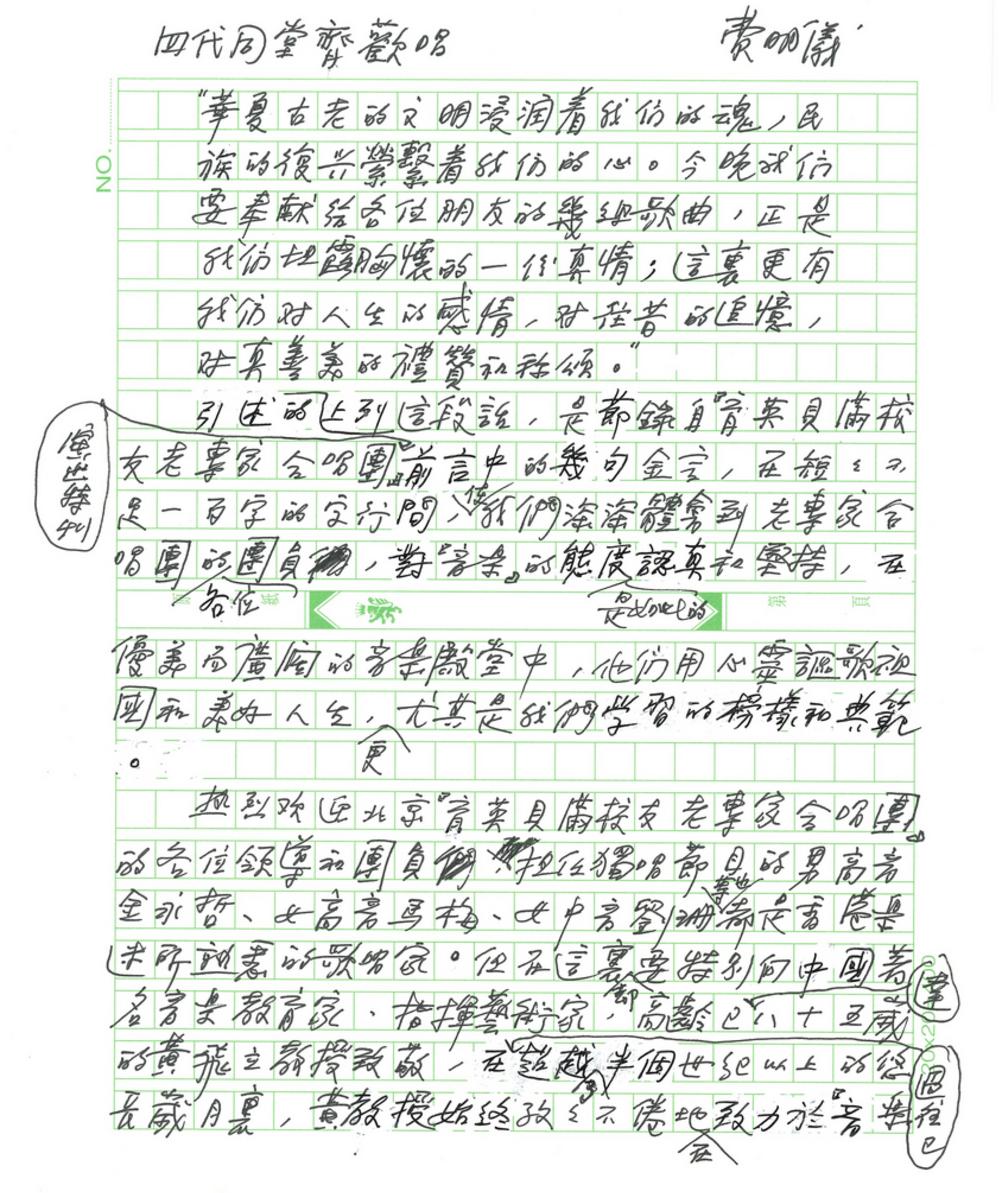 四代同堂齊歡唱 費明儀
"華夏古老的文明浸润着我们的魂，民
族的復兴縈繫着我们的心。今晚我们
要奉献给各位朋友的幾组歌曲，正是
我们坦露胸懷的一份真情；這裏更有
我们对人生的感情，对往昔的追憶，
对真善美的禮贊和称颂。"
引述的上列這段話，是節錄自『育英貝滿校
友老專家合唱團』前言中的幾句金言，在短々不
演出特刊
足一百字的字行間，使我們深深體會到老專家合
唱團的團員，對『音樂』的態度認真和堅持，在
各位 是如此的
NO.
第 頁
優美而廣闊的音樂殿堂中，他们用心靈謳歌祖
國和美好人生，尤其是我們學習的榜樣和典範
。 更
热烈欢迎北京『育英貝滿校友老專家合唱團』
的各位領導和團員 担任獨唱節目的男高音
金永哲、女高音馬梅、女中音劉珊都是香港樂
等也
迷所熟悉的歌唱家。但在這裏要特別向中國著
名音樂教育家、指揮藝術家，高齡已八十五歲
的黃飛立教授致敬，在超越半個世紀以上的悠
長歲月裏，黃教授始終孜々不倦地致力於『音樂
在